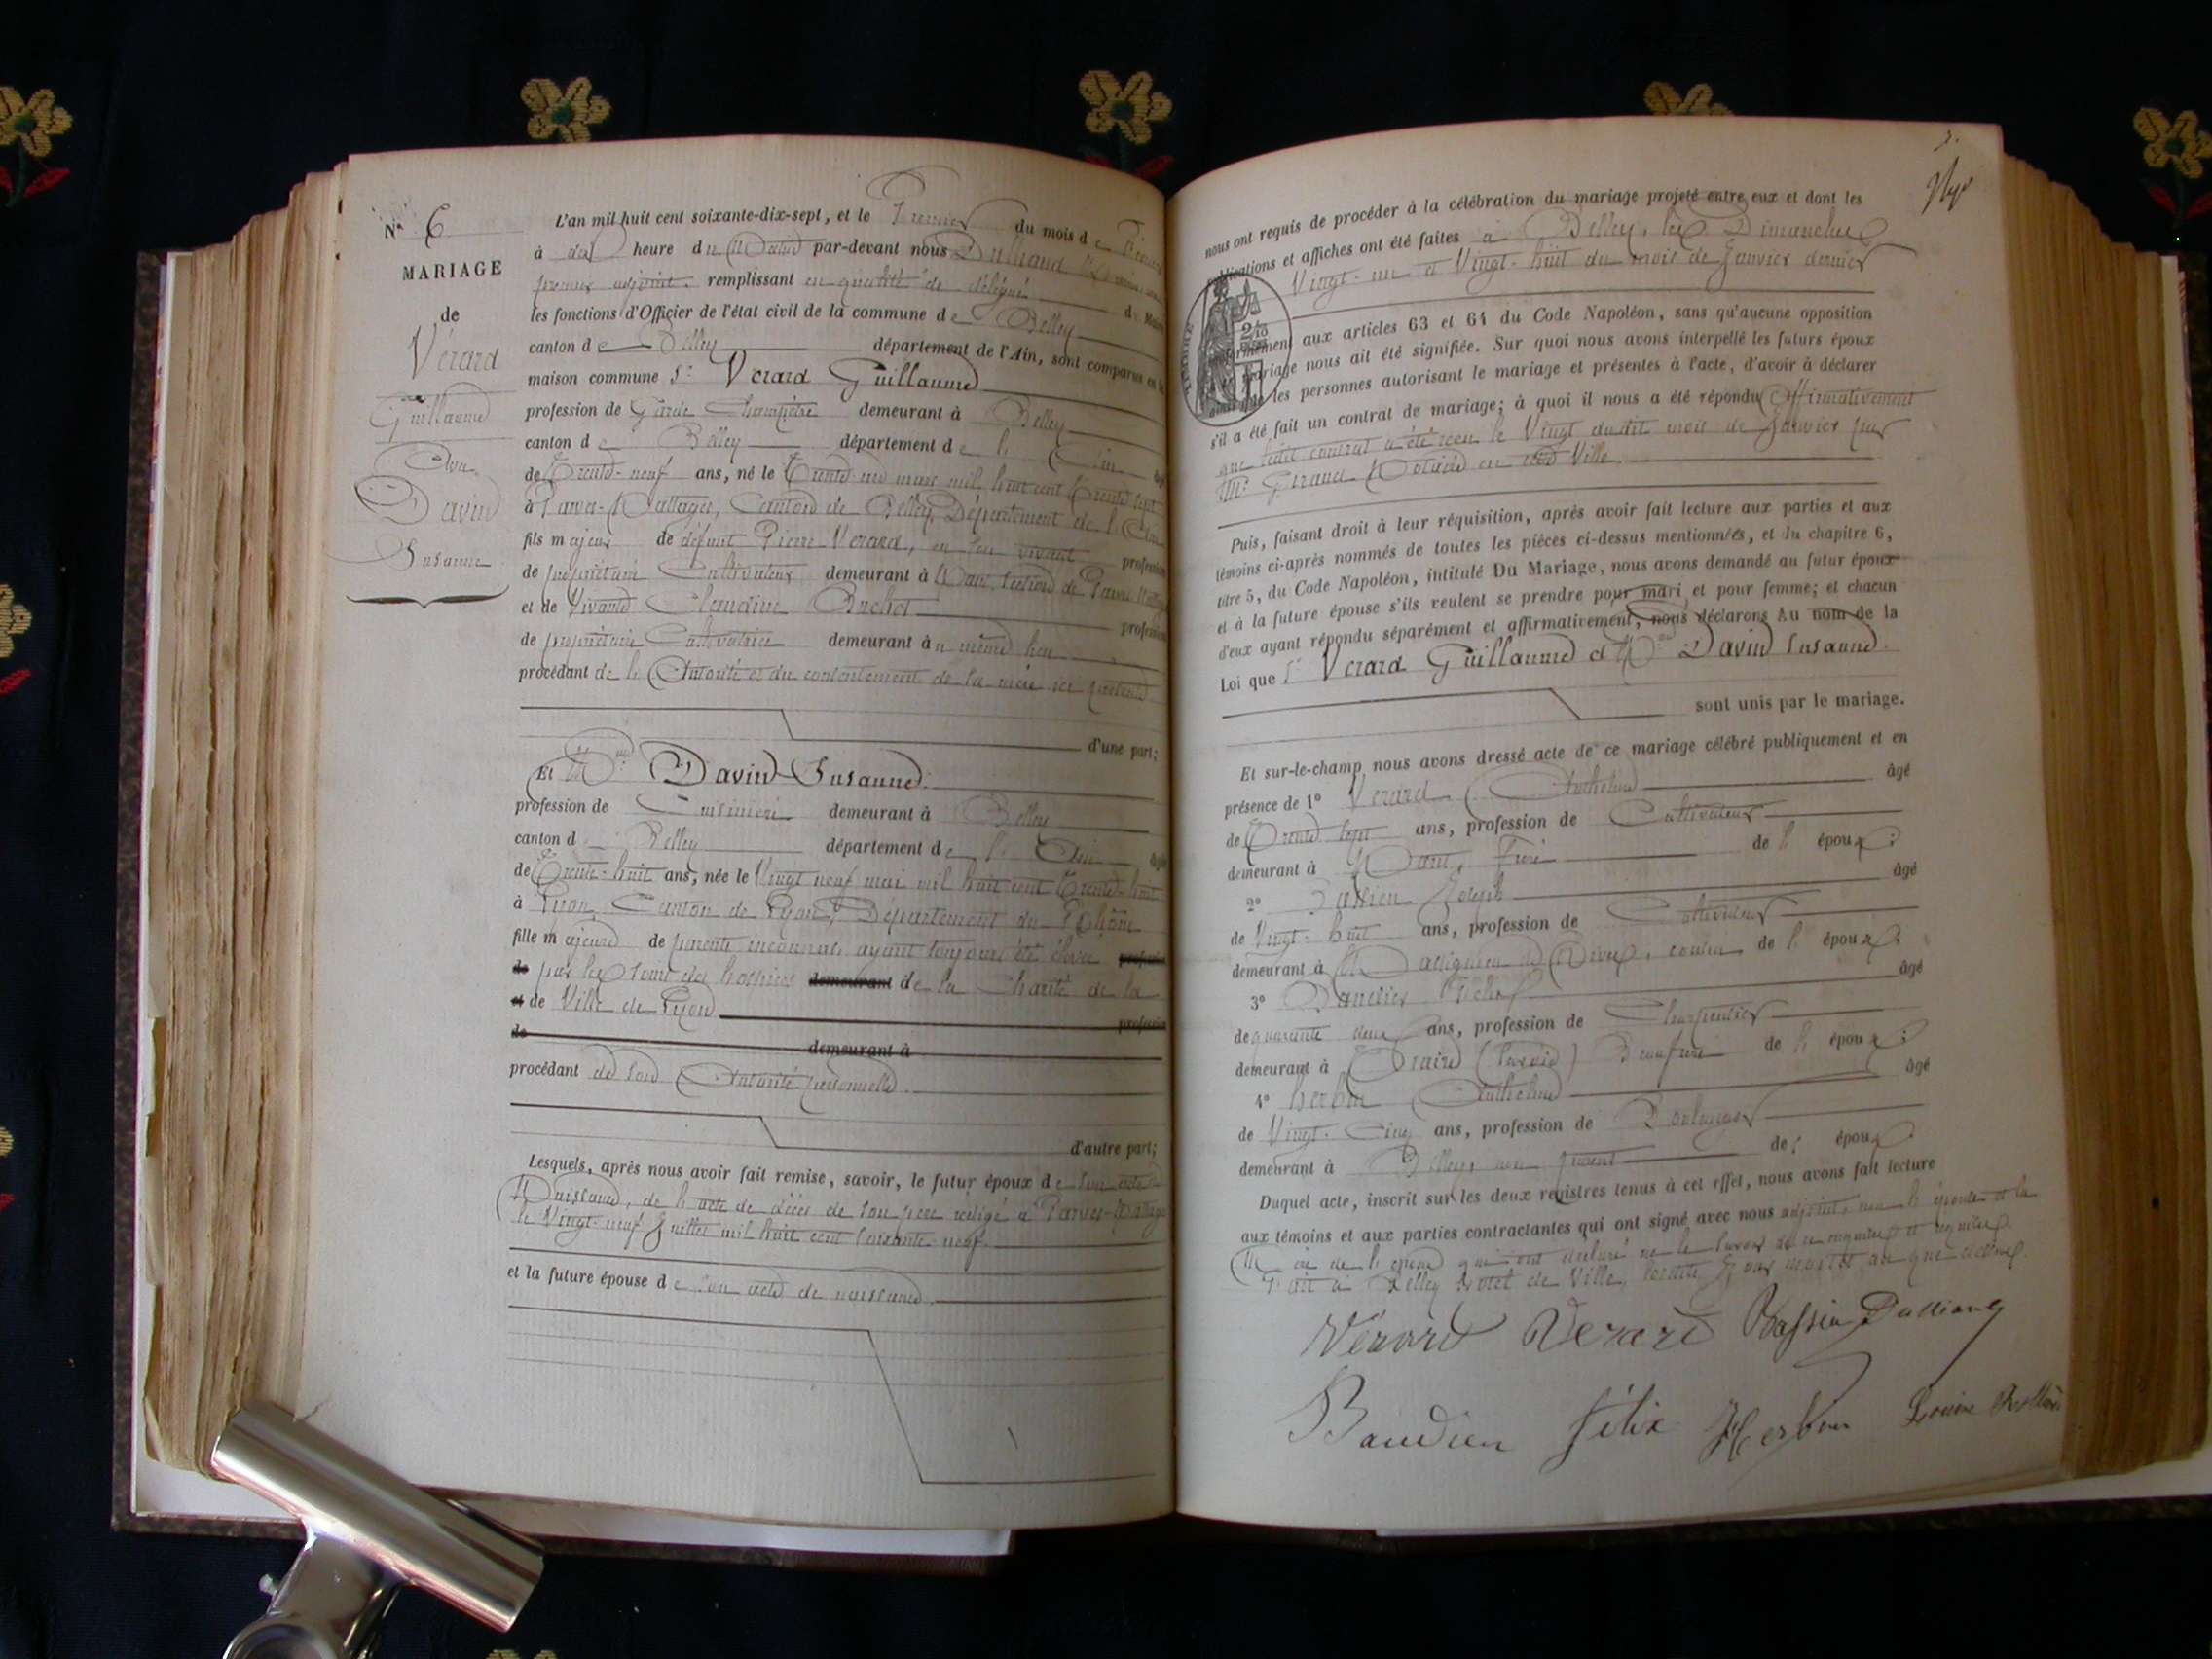 Nº 6
MARIAGE
de
Vérard
Guillaume
Avec
David
Susanne
L'an mil huit cent soixante-dix-sept, et le Premier du mois de
à dix heure du Matin par-devant nous
premier adjoint remplissant en qualité de délégué du Maire
les fonctions d'Officier de l'état civil de la commune de Belley
canton de Belley département de l'Ain, sont comparus en la
maison commune Sr Verard Guillaume
profession de Garde Champêtre demeurant à Belley
canton de Belley département de l'Ain âgé
de Trente-neuf ans, né le Trente un mars mil huit cent Trente sept
à Parves, Canton de Belley, Département de l'Ain
fils majeur de défunt Pierre Verard, en son vivant profession
de propriétaire Cultivateur demeurant à section de
et de Vivante Claudine profession
de propriétaire Cultivatrice demeurant au même lieu
procédant de l'Autorité et du consentement de sa mère ici présente
d'une part;
Et Dlle David Susanne
profession de Cuisinière demeurant à Belley
canton d Belley département de l'Ain âgée
de Trente-huit ans, née le Vingt neuf mai mil huit cent Trente-huit
à Lyon, Canton de Lyon, Département du Rhône
fille majeure de parents inconnus, ayant toujours été élevée profession
de par les soins des hospices demeurant de la Charité de la
et de Ville de Lyon profession
de demeurant à
procédant de son Autorité personnelle
d'autre part;
Lesquels, après nous avoir fait remise, savoir, le futur époux de son acte de
Naissance, de l'acte de décès de son père rédigé à
le Vingt-neuf Juillet mil huit cent soixante-neuf
et la future épouse de son acte de naissance
nous ont requis de procéder à la célébration du mariage projeté entre eux et dont les
publications et affiches ont été faites à Belley, les Dimanches
Vingt-un et Vingt-huit du mois de Janvier dernier
conformément aux articles 63 et 64 du Code Napoléon, sans qu'aucune opposition
mariage nous ait été signifiée. Sur quoi nous avons interpellé les futurs époux
ainsi que les personnes autorisant le mariage et présentes à l'acte, d'avoir à déclarer
s'il a été fait un contrat de mariage; à quoi il nous a été répondu Affirmativement
que ledit contrat a été reçu le Vingt dudit mois de Janvier par
Me Notaire en cette Ville
Puis, faisant droit à leur réquisition, après avoir fait lecture aux parties et aux
témoins ci-après nommés de toutes les pièces ci-dessus mentionnées, et du chapitre 6,
titre 5, du Code Napoléon, intitulé Du Mariage, nous avons demandé au futur époux
et à la future épouse s'ils veulent se prendre pour mari et pour femme; et chacun
d'eux ayant répondu séparément et affirmativement, nous déclarons Au nom de la
Loi que Sr Verard Guillaume et Dlle David Susanne
sont unis par le mariage.
Et sur-le-champ nous avons dressé acte de ce mariage célébré publiquement et en
présence de 1º Verard Anthelme âgé
de Trente sept ans, profession de Cultivateur
demeurant à frère de l'époux;
2º Joseph âgé
de Vingt-huit ans, profession de Cultivateur
demeurant à cousin de l'époux;
3º âgé
de quarante deux ans, profession de Charpentier
demeurant à Beaufrère de l'époux;
4º Herbin Anthelme âgé
de Vingt-Cinq ans, profession de Boulanger
demeurant à Belley, non parent de l'époux
Duquel acte, inscrit sur les deux registres tenus à cet effet, nous avons fait lecture
aux témoins et aux parties contractantes qui ont signé avec nous adjoint, non l'épouse et la
Mère de l'époux qui ont déclaré ne le savoir de ce enquises et requises
Fait à Belley hôtel de Ville, les dits Jour mois et an que dessus
Vérard Verard
Baudien félix Herbin